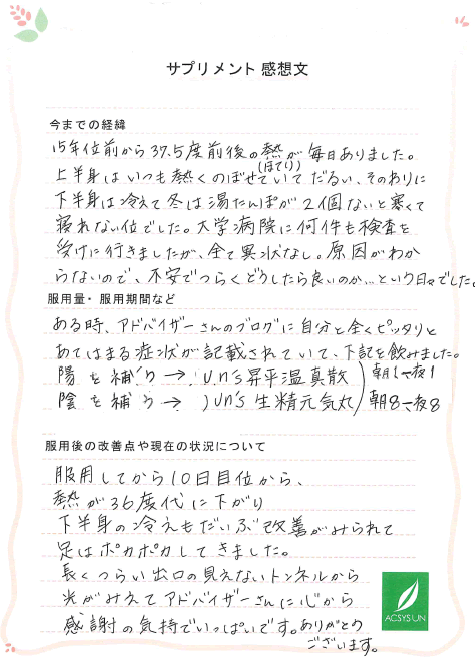 サプリメント 感想文
今までの経緯
15年位前から37.5度前後の熱が毎日ありました。
(ほてり)
上半身はいつも熱くのぼせていてだるい、そのわりに
下半身は冷えて冬は湯たんぽが2個ないと寒くて
寝れない位でした。大学病院に何件も検査を
受けに行きましたが、全て異状なし。原因がわか
らないので、不安でつらくどうしたら良いのか…という日々でした。
服用量・服用期間など
ある時、アドバイザーさんのブログに自分と全くピッタリと
あてはまる症状が記載されていて、下記を飲みました。
陽を補う→、Un's昇平温真散 朝1〜夜1
陰を補う→、Un's生精元気丸 朝8〜夜8
服用後の改善点や現在の状況について
服用してから10日目位から、
熱が36度代に下がり
下半身の冷えもだいぶ改善がみられて
足はポカポカしてきました。
長くつらい出口の見えないトンネルから
光がみえてアドバイザーさんに心から
感謝の気持でいっぱいです。ありがとう
ございます。
ACSYSUN